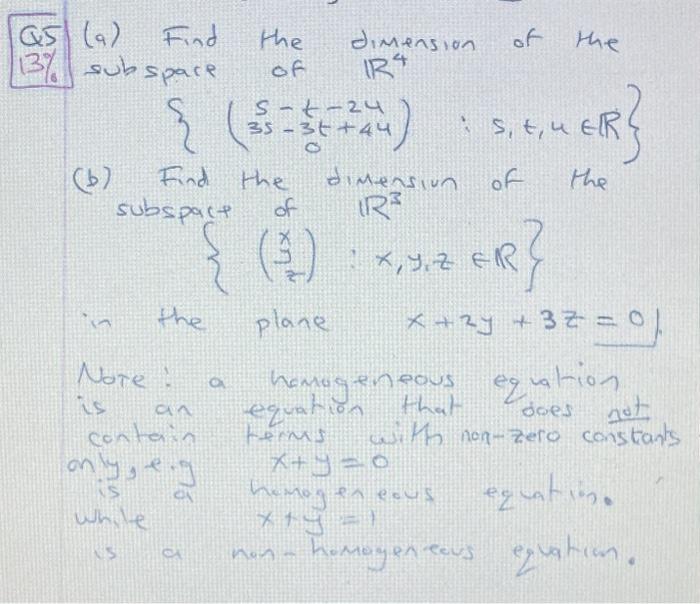 Q5 (a) Find the dimension of the
13% subspace of ℝ⁴
{ ( s - t - 2u
3s - 3t + 4u
0 ) : s, t, u ∈ ℝ }
(b) Find the dimension of the
subspace of ℝ³
{ ( x
y
z ) : x, y, z ∈ ℝ }
in the plane x + 2y + 3z = 0
Note: a homogeneous equation
is an equation that does not
contain terms with non-zero constants
only, e.g x + y = 0
is a homogeneous equation.
while x + y = 1
is a non-homogeneous equation.